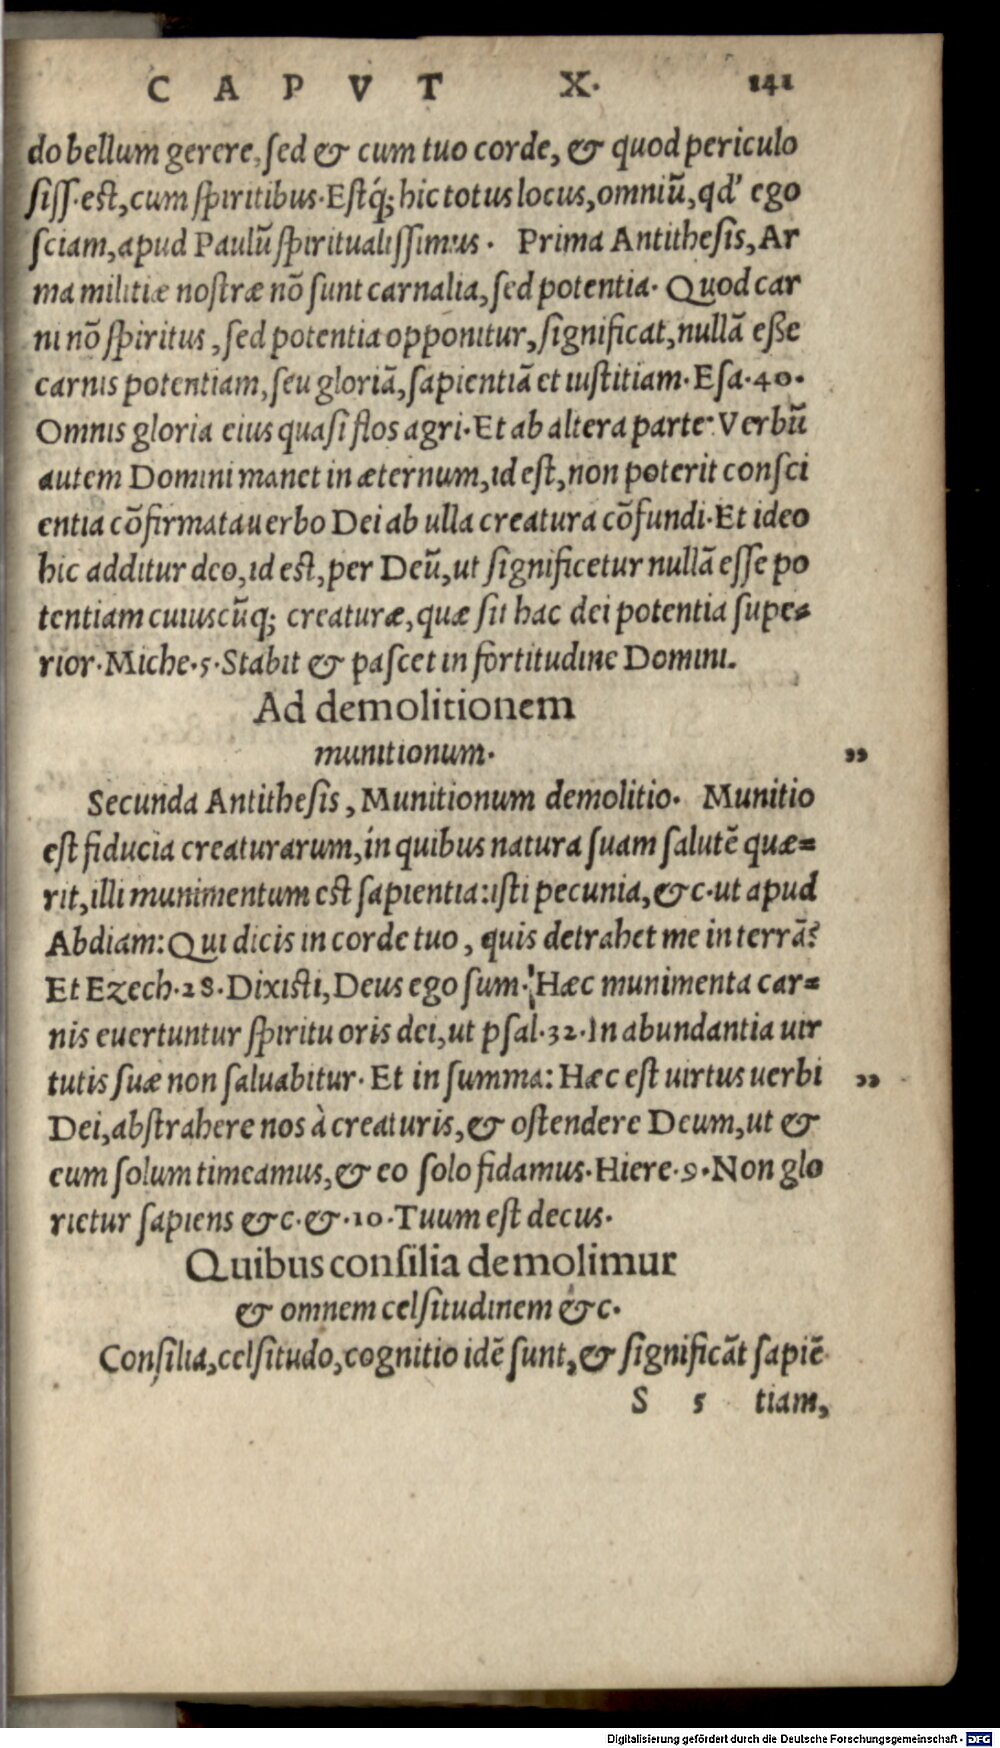 CAPVT X. 141
do bellum gerere, sed & cum tuo corde, & quod periculo
siss. est, cum spiritibus. Estq́; hic totus locus, omniũ, qd' ego
sciam, apud Paulũ spiritualissimus. Prima Antithesis, Ar
ma militiæ nostræ nõ sunt carnalia, sed potentia. Quod car
ni nõ spiritus, sed potentia opponitur, significat, nullã eße
carnis potentiam, seu gloriã, sapientiã et iustitiam. Esa. 40.
Omnis gloria eius quasi flos agri. Et ab altera parte: Verbũ
autem Domini manet in æternum, id est, non poterit consci
entia cõfirmata uerbo Dei ab ulla creatura cõfundi. Et ideo
hic additur deo, id est, per Deũ, ut significetur nullã esse po
tentiam cuiuscũq; creaturæ, quæ sit hac dei potentia supe=
rior. Miche. 5. Stabit & pascet in fortitudine Domini.
Ad demolitionem
munitionum. „
Secunda Antithesis, Munitionum demolitio. Munitio
est fiducia creaturarum, in quibus natura suam salutẽ quæ=
rit, illi munimentum est sapientia: isti pecunia, &c. ut apud
Abdiam: Qui dicis in corde tuo, quis detrahet me in terrã?
Et Ezech. 28. Dixisti, Deus ego sum. Hæc munimenta car=
nis euertuntur spiritu oris dei, ut psal. 32. In abundantia uir
tutis suæ non saluabitur. Et in summa: Hæc est uirtus uerbi „
Dei, abstrahere nos à creaturis, & ostendere Deum, ut &
eum solum timeamus, & eo solo fidamus. Hiere. 9. Non glo
rietur sapiens &c. &. 10. Tuum est decus.
Quibus consilia demolimur
& omnem celsitudinem &c.
Consilia, celsitudo, cognitio idẽ sunt, & significãt sapiẽ
S 5 tiam,
Digitalisierung gefördert durch die Deutsche Forschungsgemeinschaft - DFG